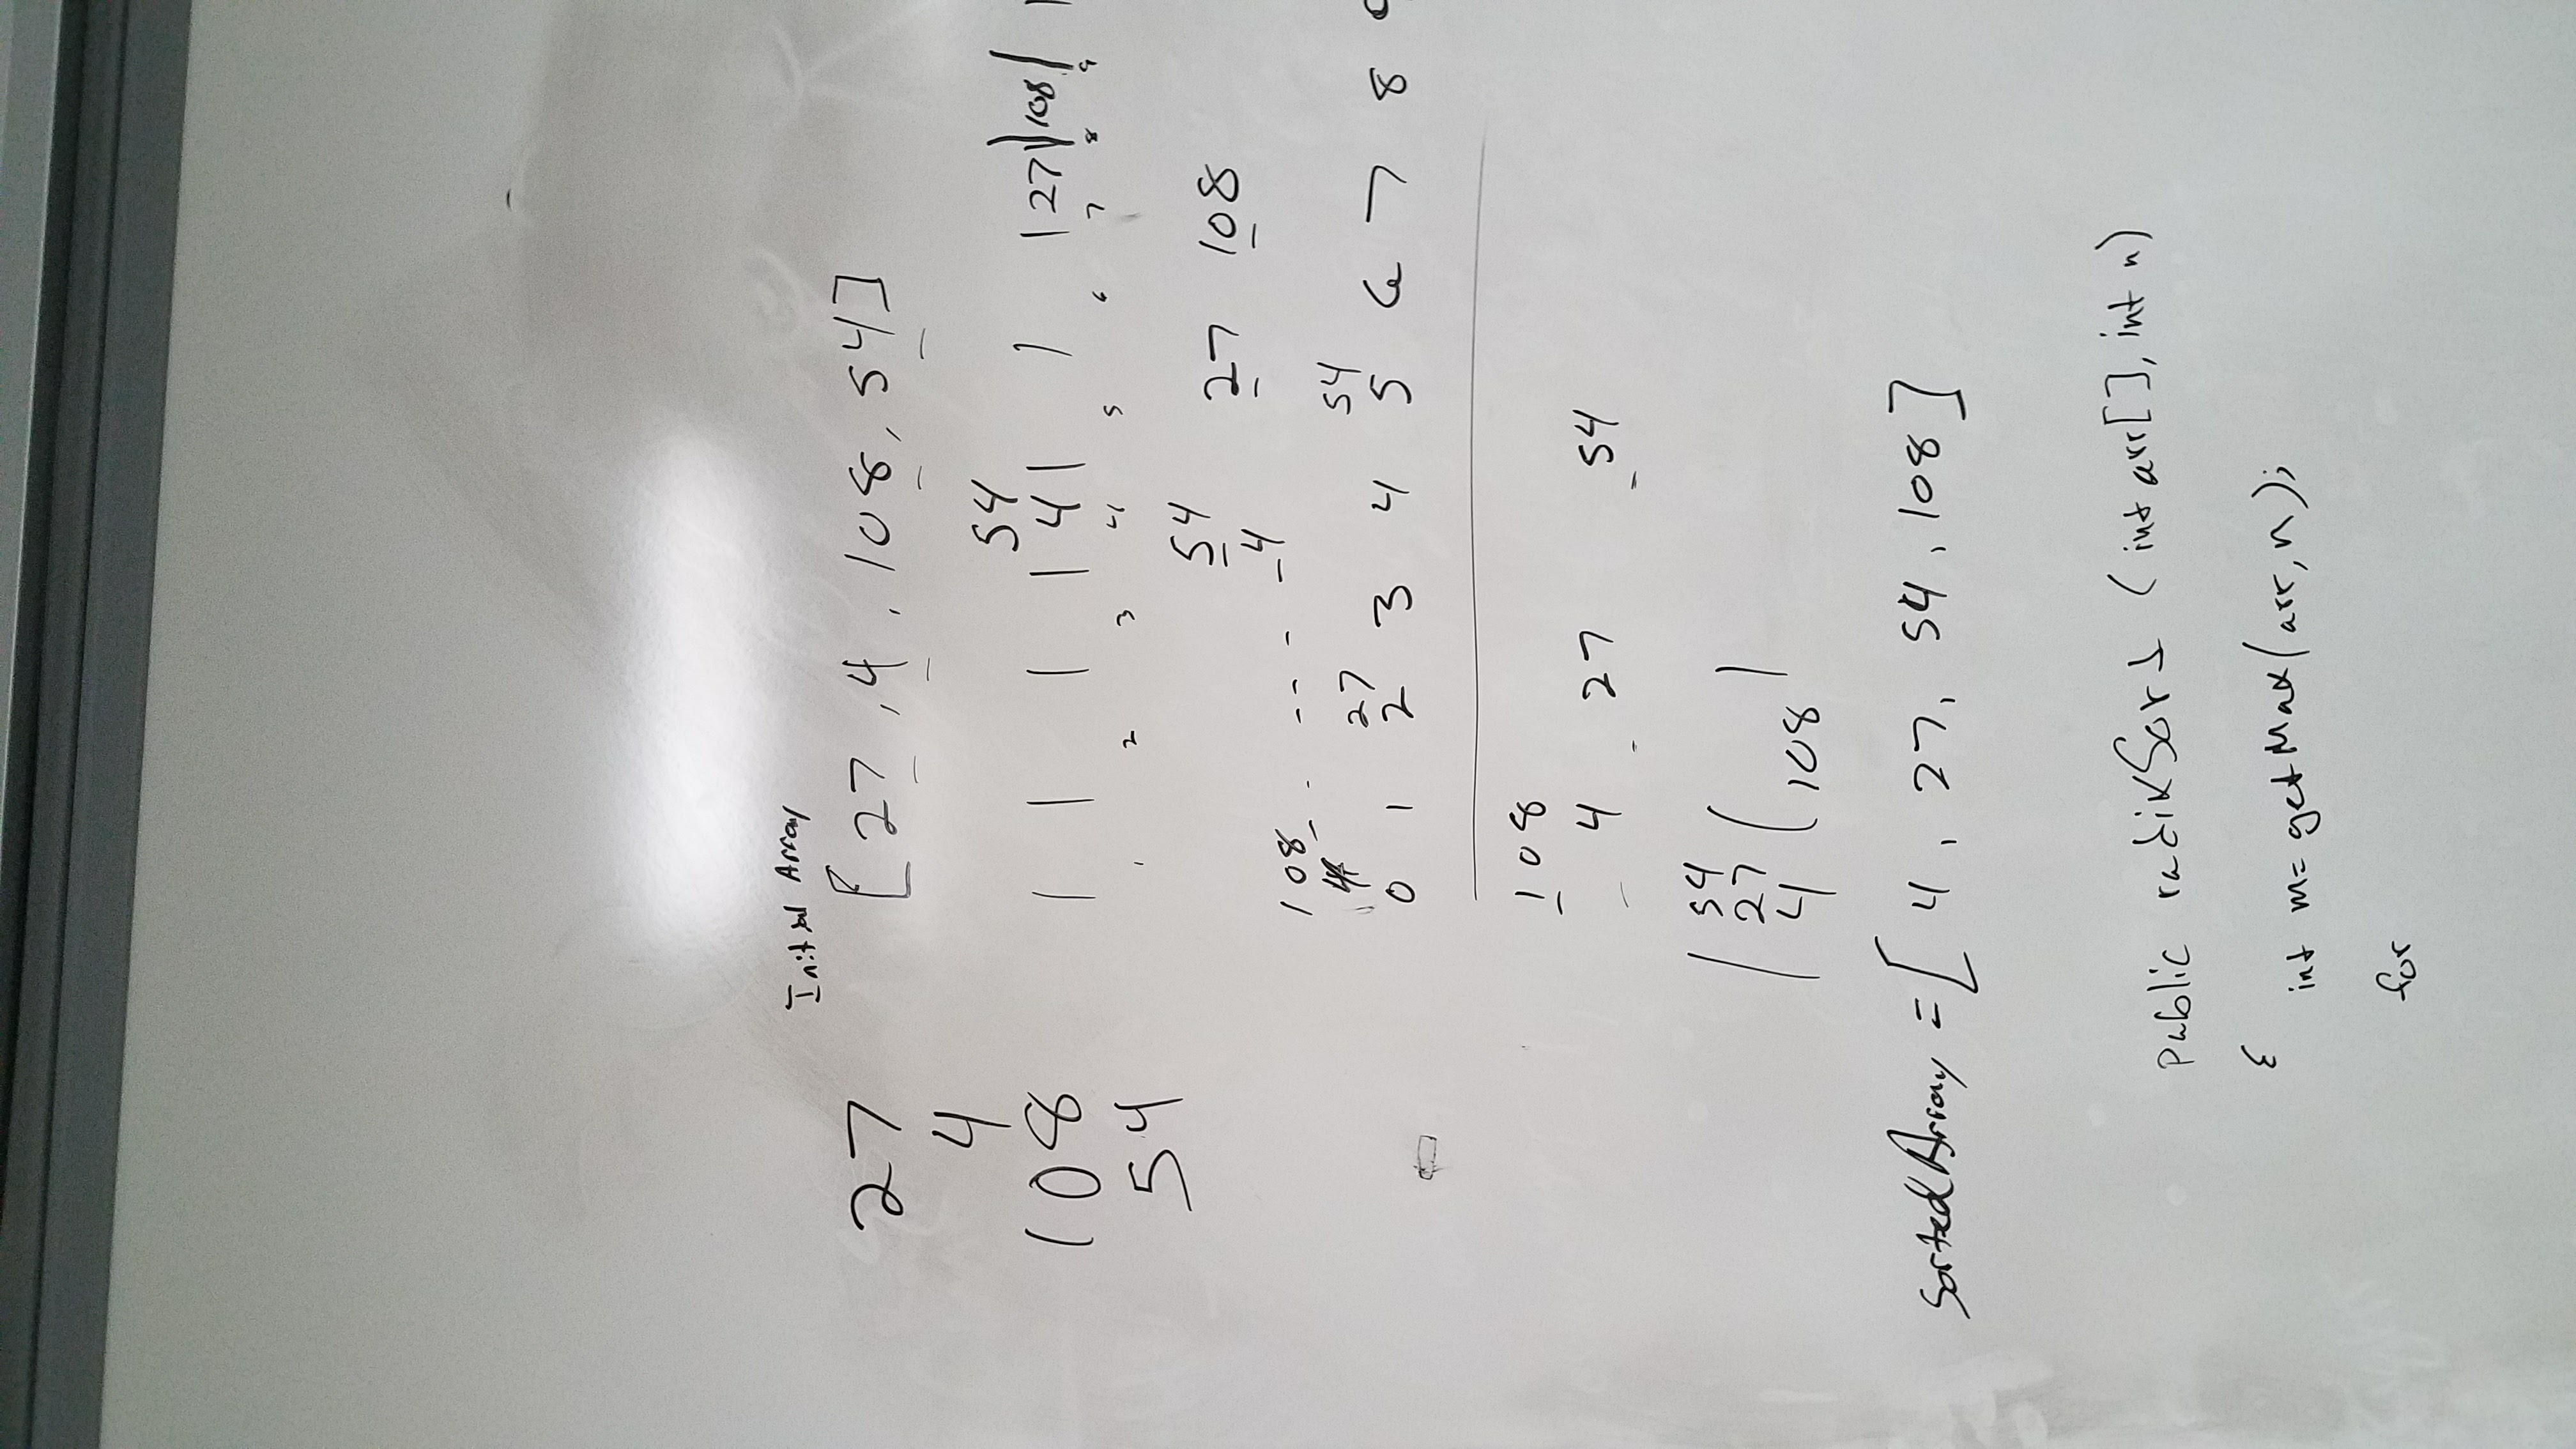 Initial Array
27
4
108
54
[27, 4, 108, 54]
54
| | | | 4 | | | 27 | 108 | |
1 2 3 4 5 6 7 8 9
54 27 108
4
108
27 54
0 1 2 3 4 5 6 7 8
108
4 27 54
54
27
4 108
Sorted Array = [4, 27, 54, 108]
Public radixSort (int arr[], int n)
{
int m= getMax(arr, n);
for